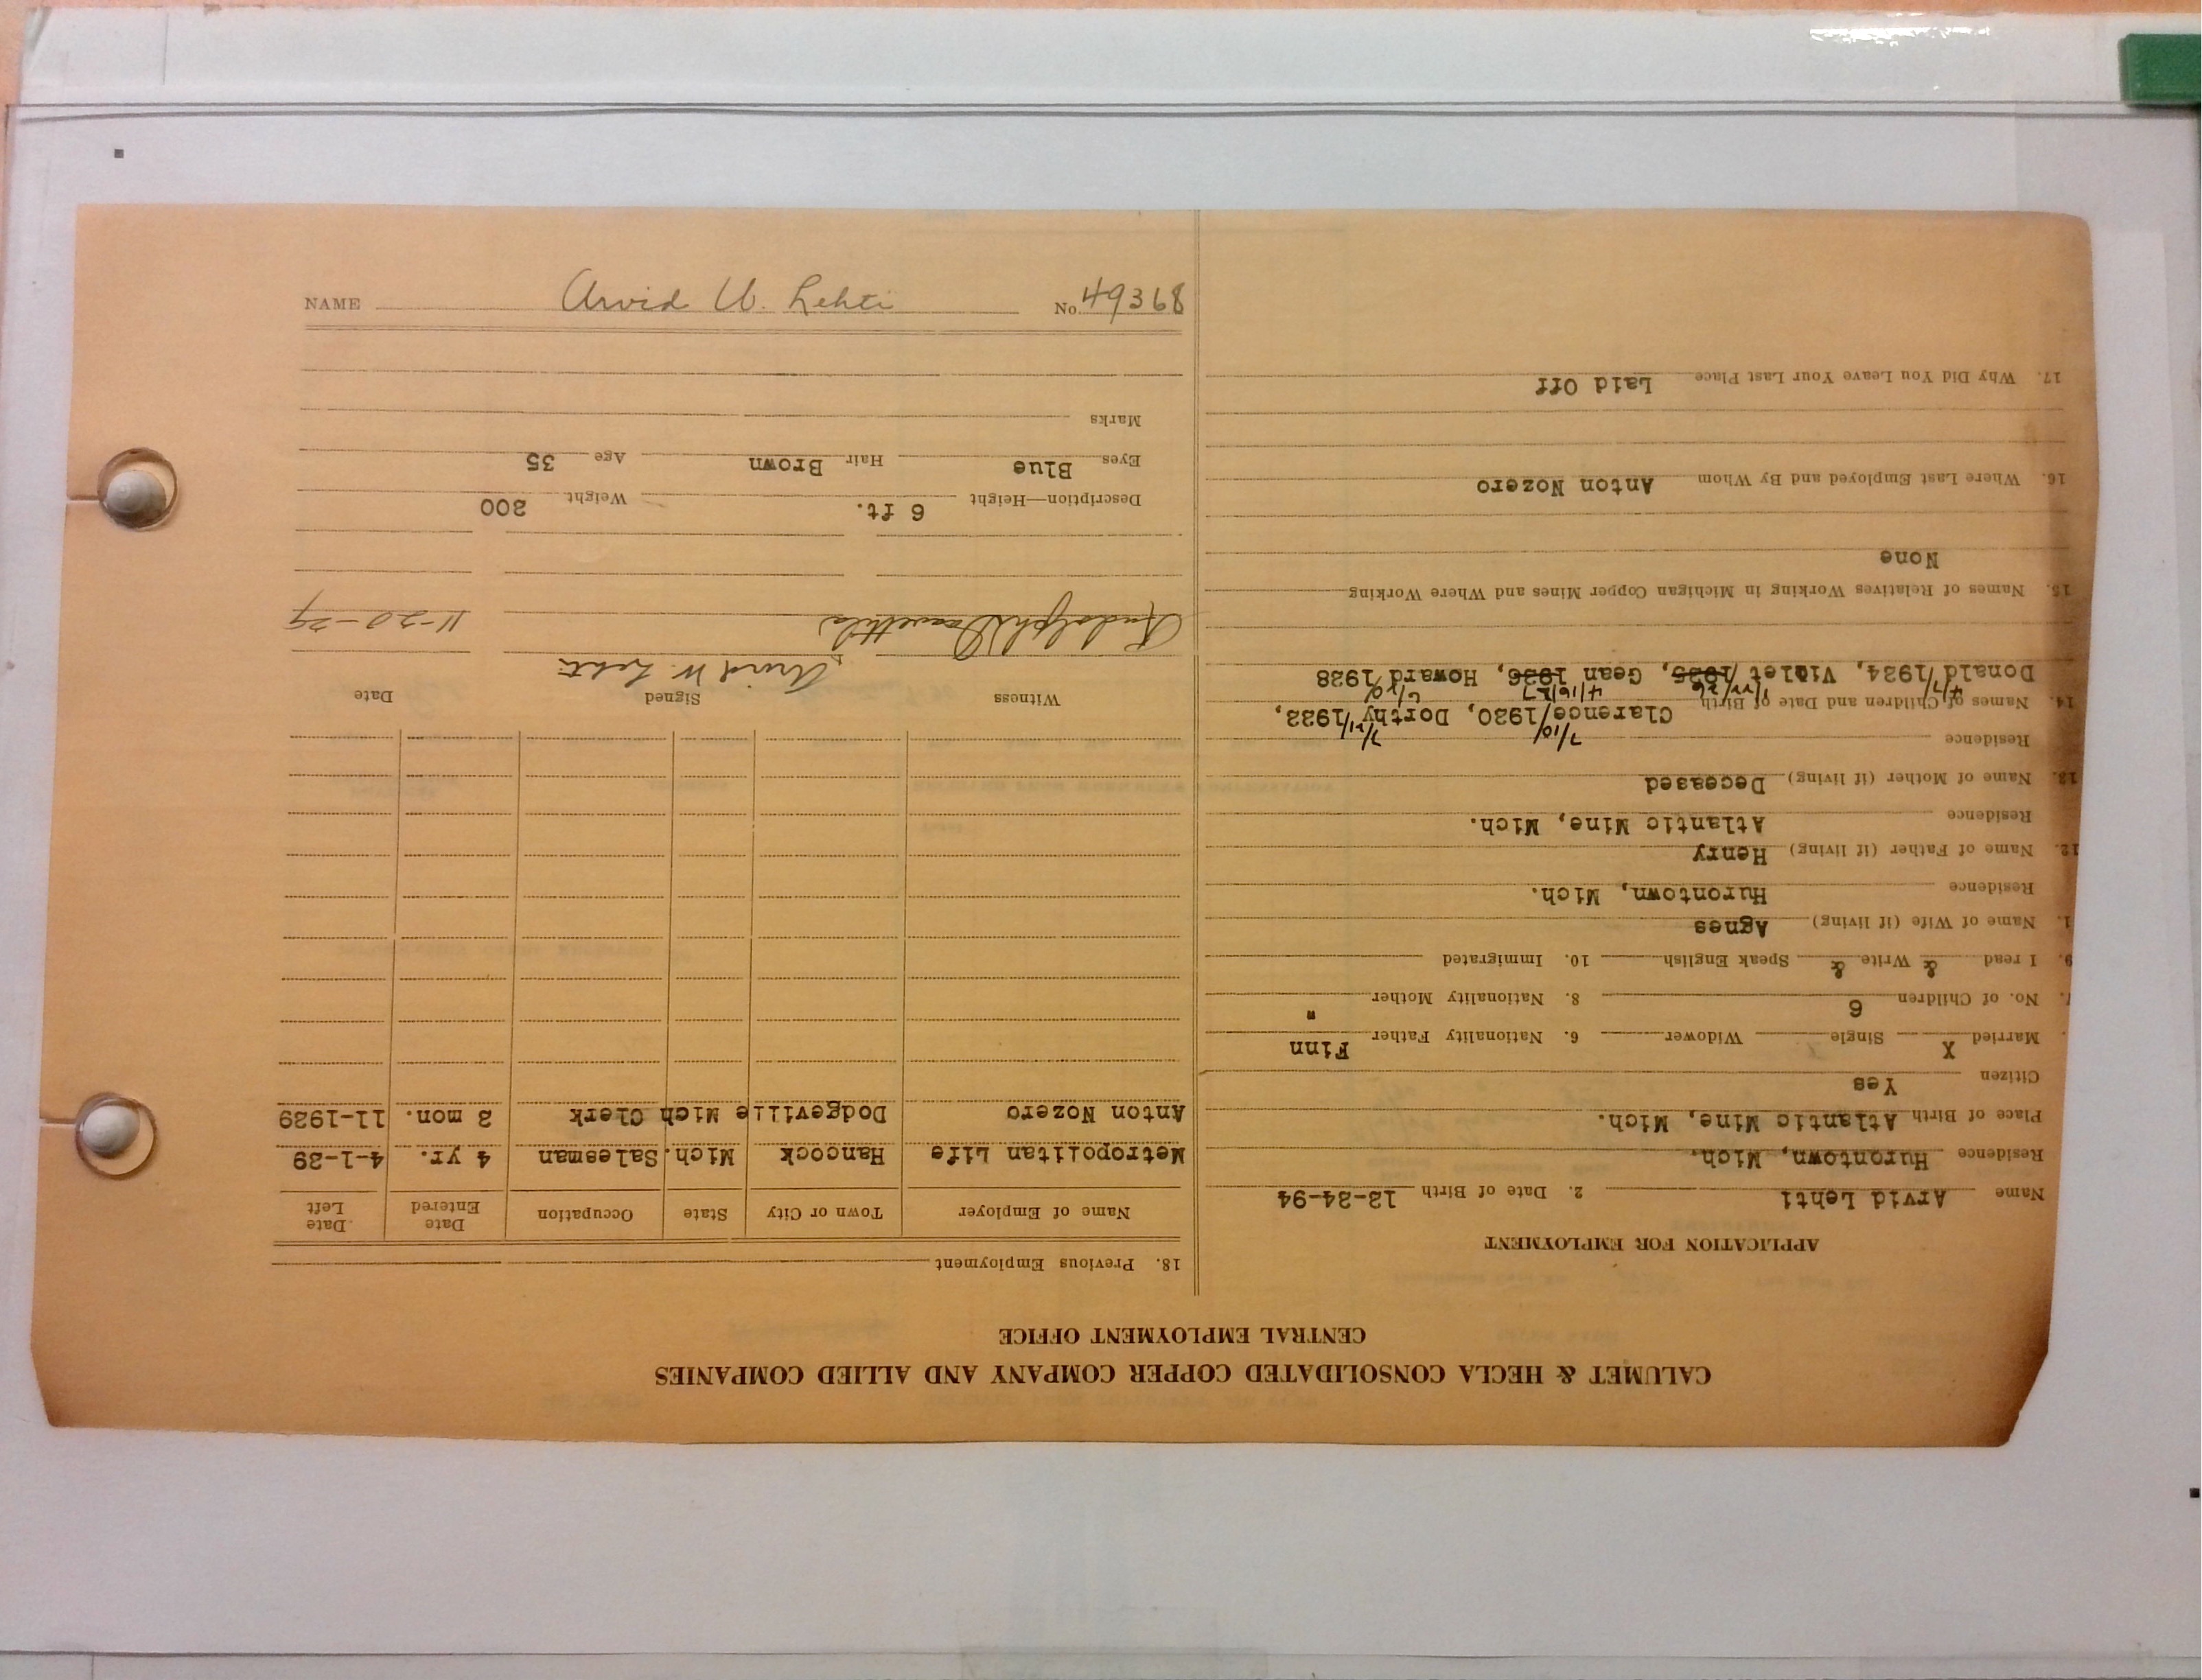 CALUMET & HECLA CONSOLIDATED COPPER COMPANY AND ALLIED COMPANIES
CENTRAL EMPLOYMENT OFFICE
APPLICATION FOR EMPLOYMENT
Name Arvid Lehti 2. Date of Birth 12-24-94
Residence Hurontown, Mich.
Place of Birth Atlantic Mine, Mich.
Citizen Yes
Married X Single Widower 6. Nationality Father Finn
7. No. of Children 6 8. Nationality Mother "
9. I read & Write & Speak English 10. Immigrated
1. Name of Wife (if living) Agnes
Residence Hurontown, Mich.
12. Name of Father (if living) Henry
Residence Atlantic Mine, Mich.
13. Name of Mother (if living) Deceased
Residence
7/10/ 7/21/
14. Names of Children and Date of Birth Clarence/1920, Dorthy/1922,
4/7/ 1/22/26 4/16/27
Donald/1924, Violet/1925, Gean 1926, Howard/1928
15. Names of Relatives Working in Michigan Copper Mines and Where Working
None
16. Where Last Employed and By Whom Anton Nozero
17. Why Did You Leave Your Last Place Laid Off
18. Previous Employment
Name of Employer Town or City State Occupation Date Entered Date Left
Metropolitan Life Hancock Mich. Salesman 4 yr. 4-1-29
Anton Nozero Dodgeville Mich Clerk 2 mon. 11-1929
Witness Signed Date
Arvid W. Lehti
Rudolph 11-20-29
Description—Height 6 ft. Weight 200
Eyes Blue Hair Brown Age 35
Marks
NAME Arvid W. Lehti No. 49368